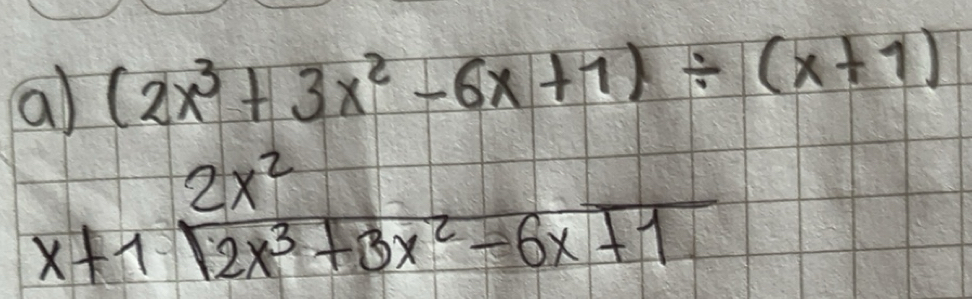 a) (2x³ + 3x² - 6x + 1) ÷ (x + 1)
2x²
x + 1 √2x³ + 3x² - 6x + 1